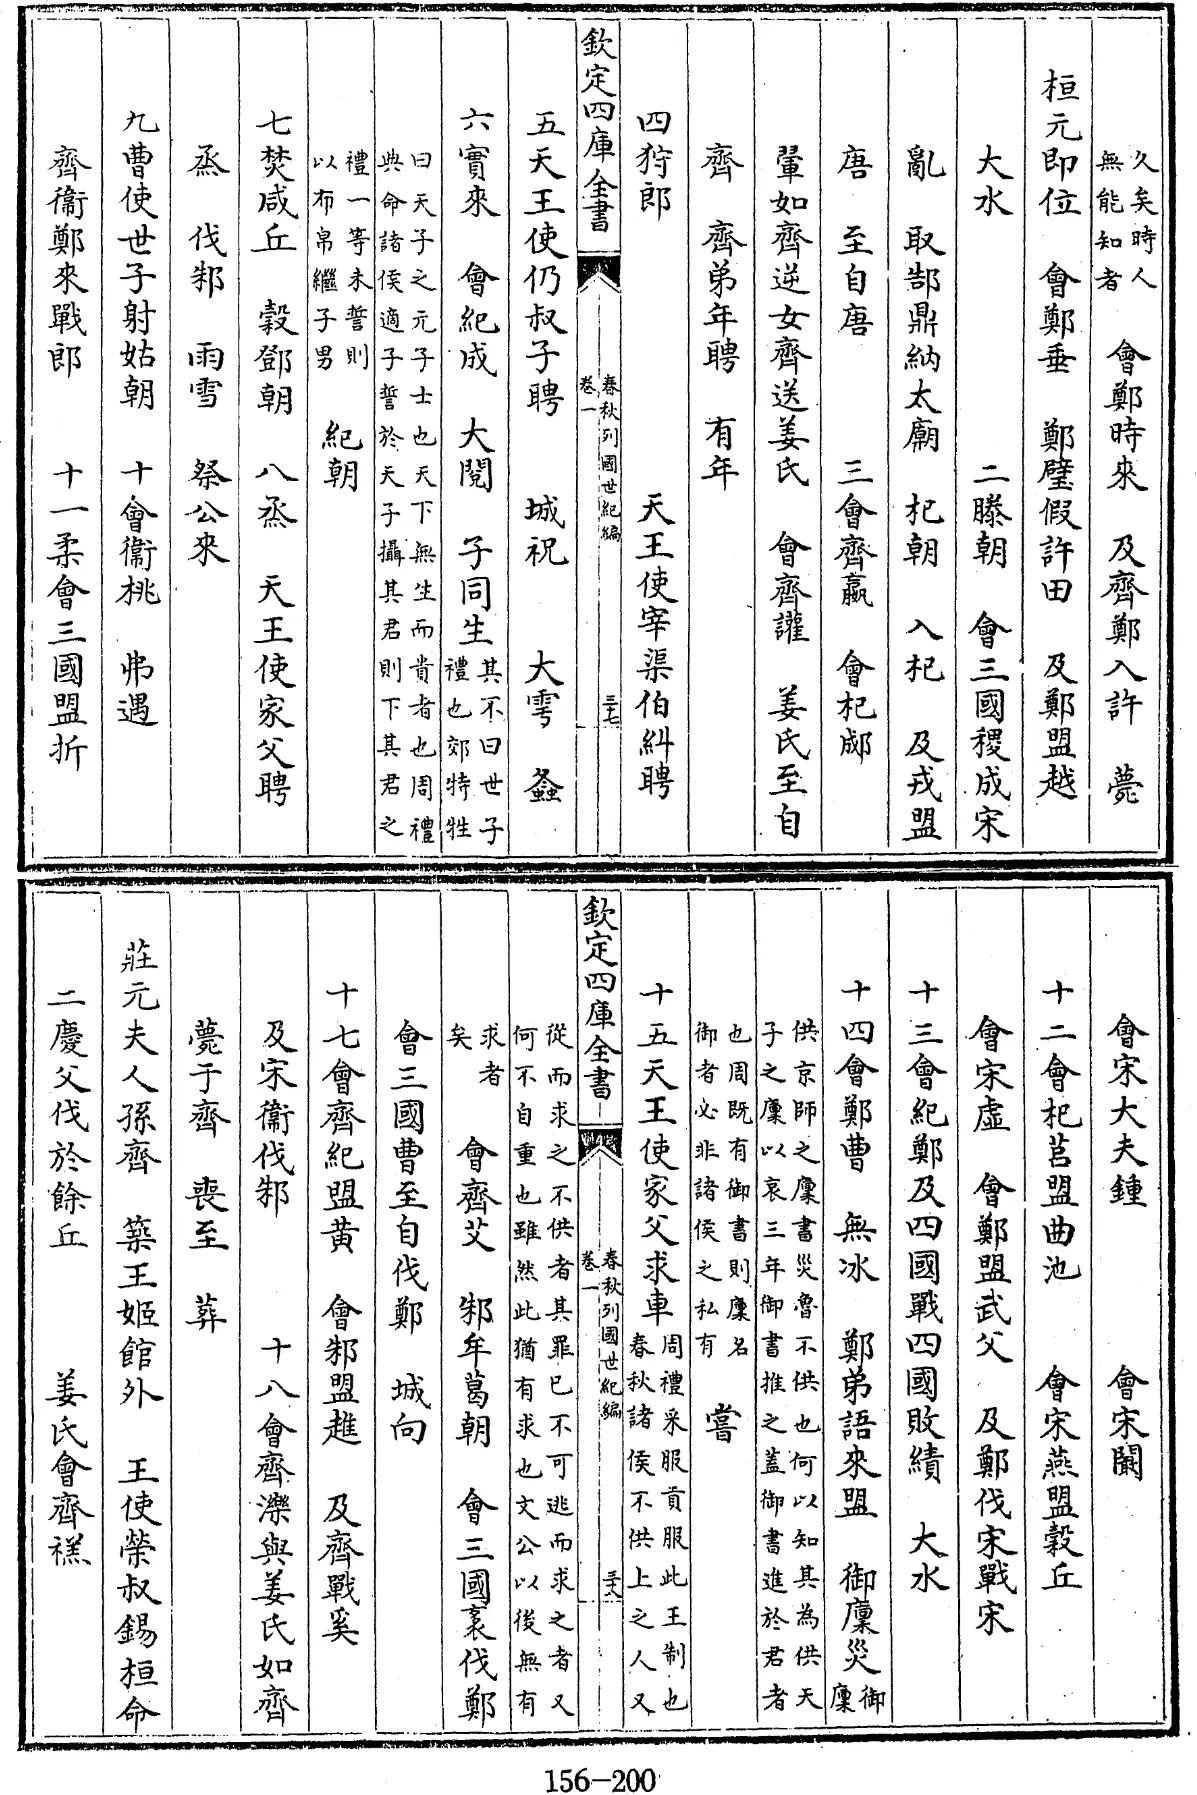 久矣時人
無能知者
會鄭時來 及齊鄭入許 薨
桓元即位 會鄭垂 鄭璧假許田 及鄭盟越
大水 二滕朝 會三國稷成宋
亂 取郜鼎納太廟 杞朝 入杞 及戎盟
唐 至自唐 三會齊嬴 會杞郕
翬如齊逆女齊送姜氏 會齊讙 姜氏至自
齊 齊弟年聘 有年
四狩郎 天王使宰渠伯糾聘
欽定四庫全書
春秋列國世紀編
卷一
三十七
五天王使仍叔子聘 城祝 大雩 螽
六實來 會紀成 大閱 子同生
其不曰世子
禮也郊特牲
曰天子之元子士也天下無生而貴者也周禮
典命諸侯適子誓於天子攝其君則下其君之
禮一等未誓則
以布帛繼子男
紀朝
七焚咸丘 穀鄧朝 八烝 天王使家父聘
烝 伐邾 雨雪 祭公來
九曹使世子射姑朝 十會衞桃 弗遇
齊衞鄭來戰郎 十一柔會三國盟折
會宋大夫鍾 會宋闞
十二會杞莒盟曲池 會宋燕盟穀丘
會宋虛 會鄭盟武父 及鄭伐宋戰宋
十三會紀鄭及四國戰四國敗績 大水
十四會鄭曹 無冰 鄭弟語來盟 御廩災
御
廩
供京師之廩書災魯不供也何以知其為供天
子之廩以哀三年御書推之蓋御書進於君者
也周既有御書則廩名
御者必非諸侯之私有
嘗
十五天王使家父求車
周禮采服貢服此王制也
春秋諸侯不供上之人又
欽定四庫全書
春秋列國世紀編
卷一
三十八
從而求之不供者其罪巳不可逃而求之者又
何不自重也雖然此猶有求也文公以後無有
求者
矣
會齊艾 邾牟葛朝 會三國袲伐鄭
會三國曹至自伐鄭 城向
十七會齊紀盟黃 會邾盟趡 及齊戰奚
及宋衞伐邾 十八會齊濼與姜氏如齊
薨于齊 喪至 葬
莊元夫人孫齊 築王姬館外 王使榮叔錫桓命
二慶父伐於餘丘 姜氏會齊禚
156-200